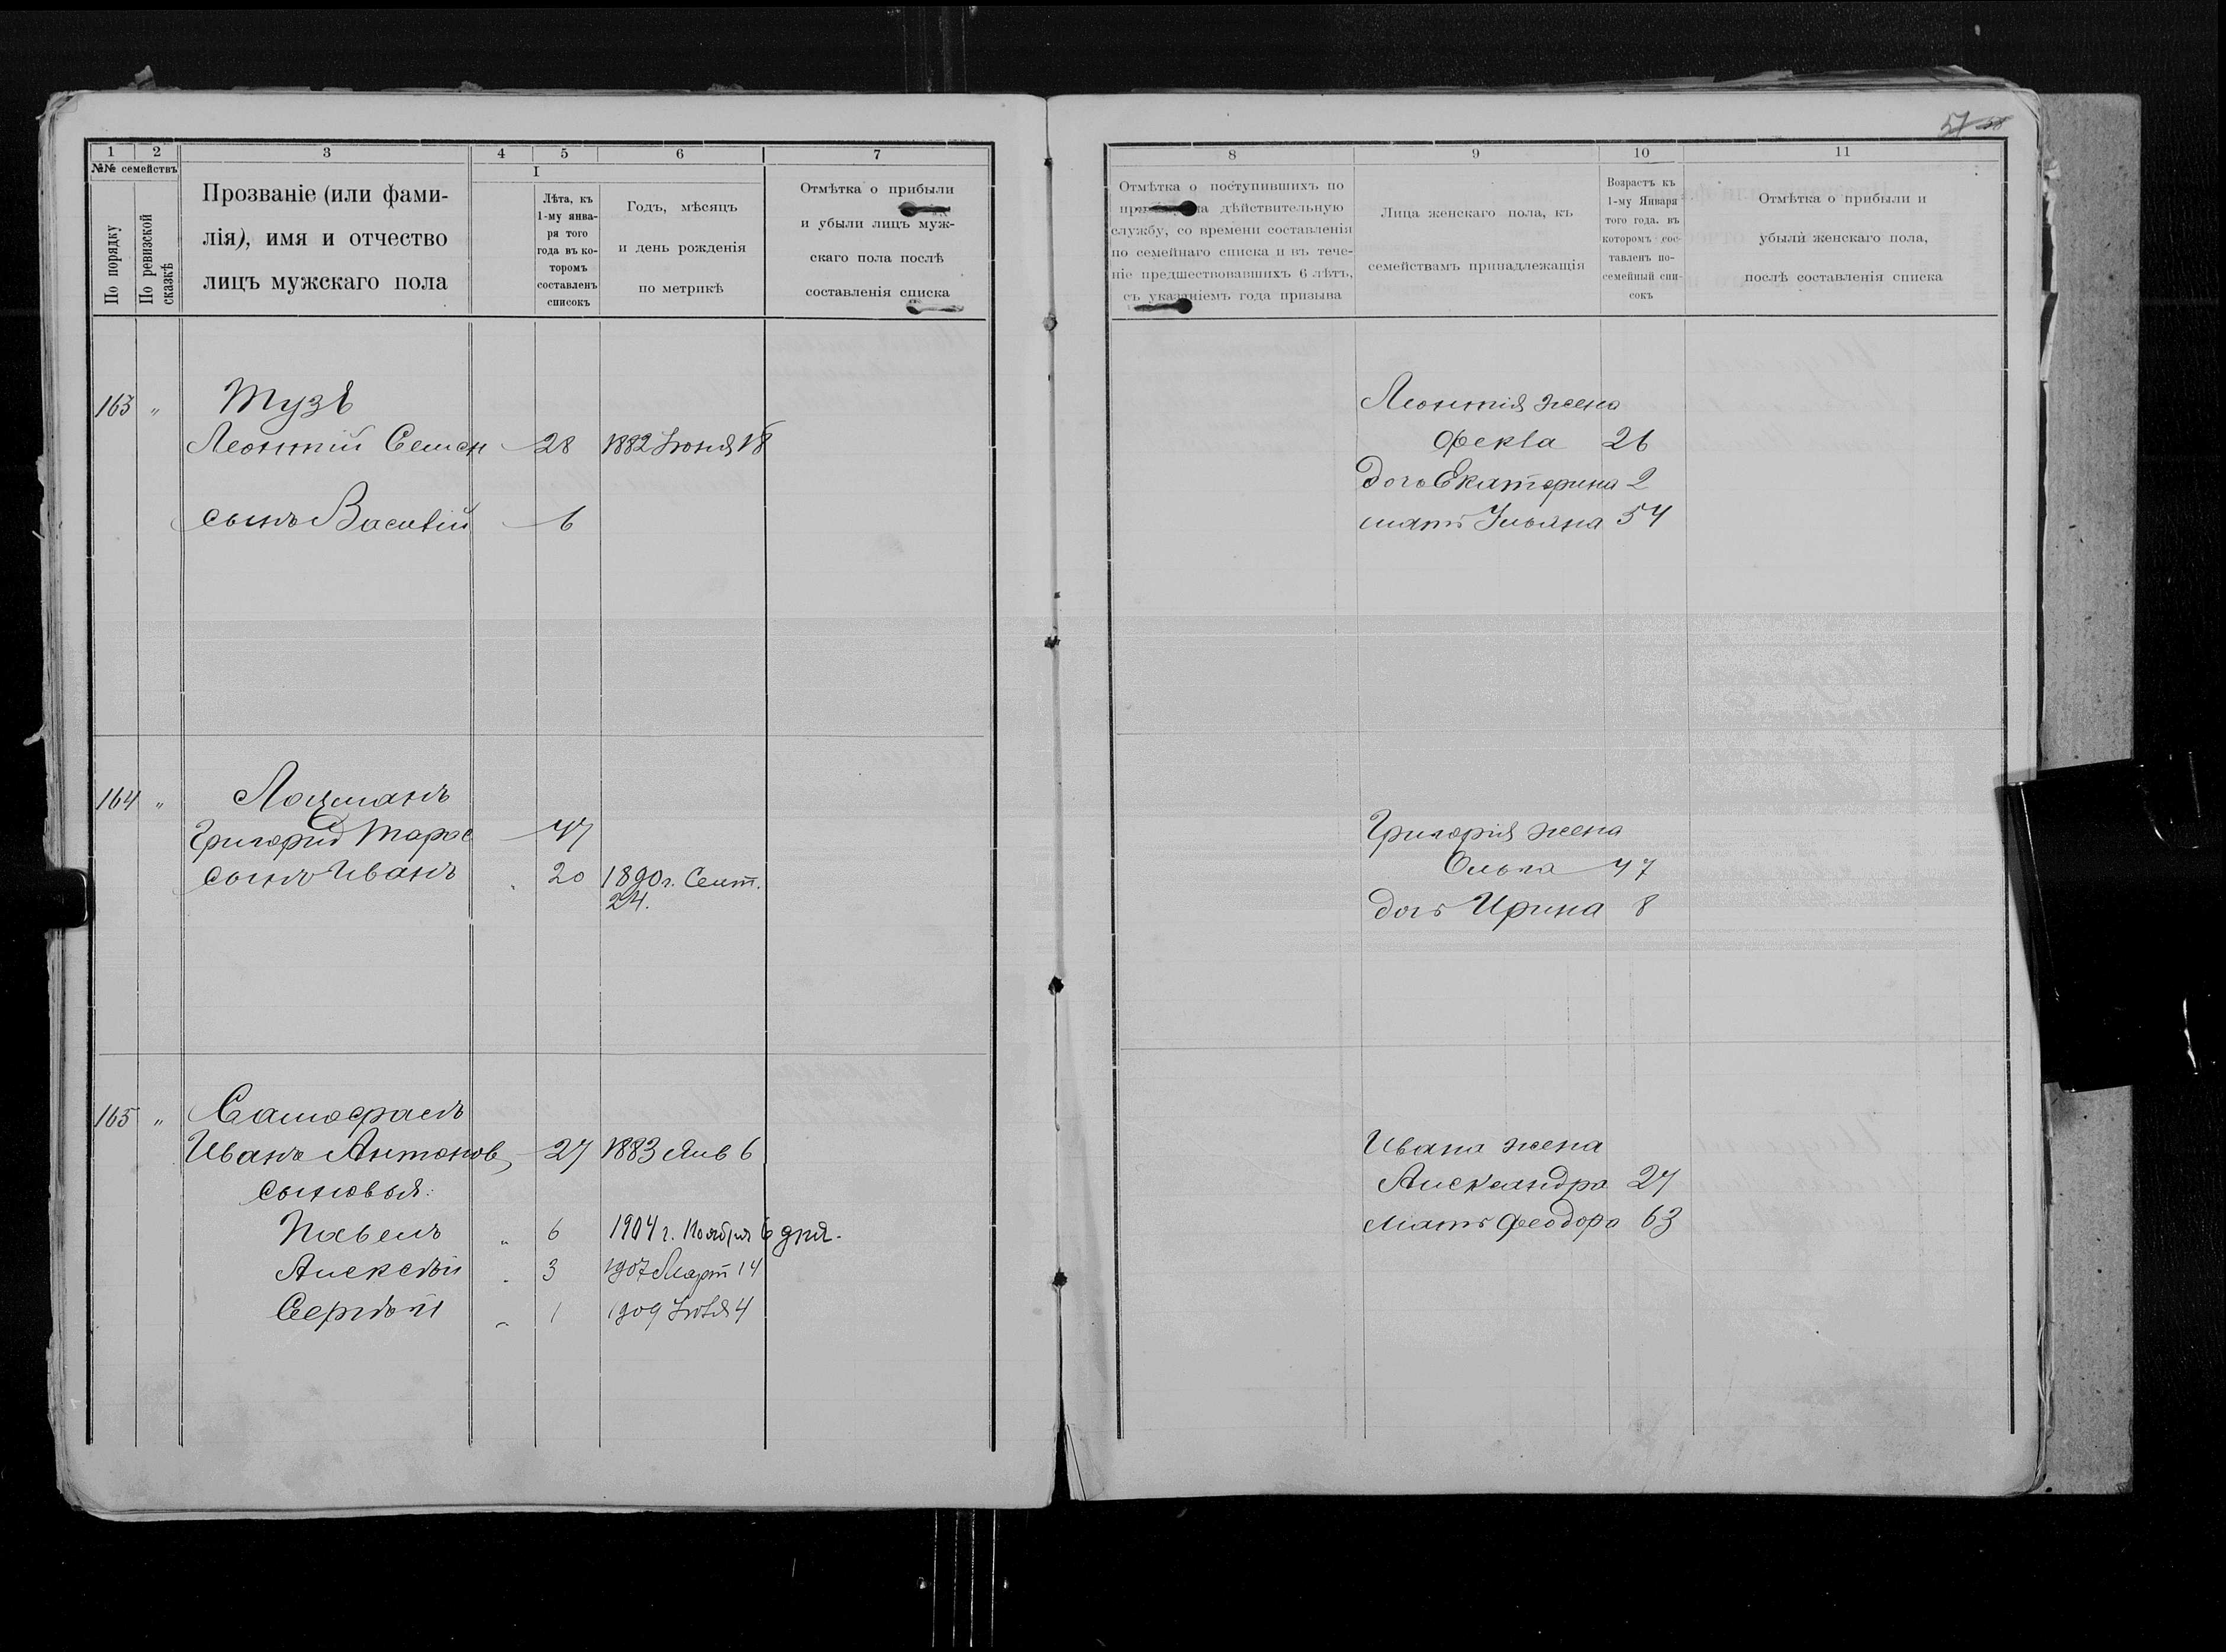 57 58
1 2 3 4 5 6 7
№№ семействъ
По порядку
По ревизской сказкѣ
Прозваніе (или фами-
лія), имя и отчество
лицъ мужскаго пола
I
Лѣта, къ
1-му янва-
ря того
года въ ко-
торомъ
составленъ
списокъ
Годъ, мѣсяцъ
и день рожденія
по метрикѣ
Отмѣтка о прибыли
и убыли лицъ муж-
скаго пола послѣ
составленія списка
163 " Тузъ
Леонтій Семен 28 1882 Іюня 18
сынъ Василій 6
164 " Лоцманъ
Григорій Тарас 47
сынъ Иванъ 20 1890 г. Сент.
24.
165 "
Иванъ Антонов 27 1883 Янв 6
сыновья:
Павелъ " 6 1904 г. Ноября 6 дня.
Алексѣй " 3 1907 Март 14
Сергѣй " 1 1909 Іюля 4
8 9 10 11
Отмѣтка о поступившихъ по
призыву на дѣйствительную
службу, со времени составленія
по семейнаго списка и въ тече-
ніе предшествовавшихъ 6 лѣтъ,
съ указаніемъ года призыва
Лица женскаго пола, къ
семействамъ принадлежащія
Возрастъ къ
1-му Января
того года. въ
которомъ сос-
тавленъ по-
семейный спи-
сокъ
Отмѣтка о прибыли и
убыли женскаго пола,
послѣ составленія списка
Леонтія жена
Фекла 26
дочь Екатерина 2
мать Ульяна 54
Григорія жена
Ольга 47
дочь Ирина 8
Ивана жена
Александра 27
мать Феодора 63